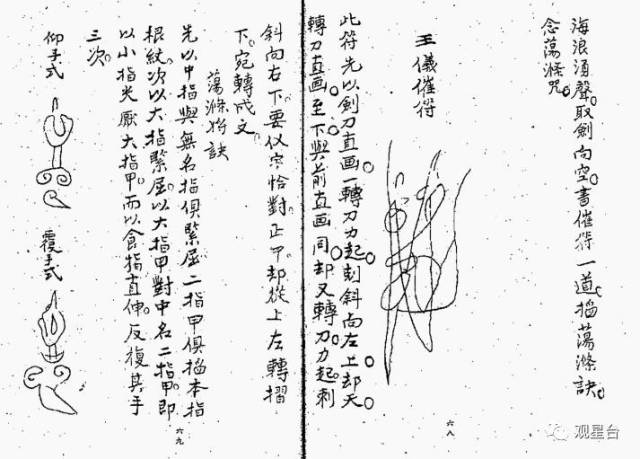 海浪涌聲。取劍向空書催符一道。掐蕩滌訣。
念蕩滌咒。
王儀催符
此符先以劍刀直画。一轉刀力起刺斜向左上。却天。
轉刀直画。至下與前直画同。却又轉刀。力起刺
六八
斜向右下。要似宗恰對正甲。却從上左轉摺
下。宛轉成文。
蕩滌指訣
先以中指與無名指俱緊屈二指甲俱掐本指
根紋。次以大指緊屈。以大指甲對中名二指甲。即
以小指尖厭大指甲。而以食指直伸。反復其手
三次。
仰手式
覆手式
六九
观星台